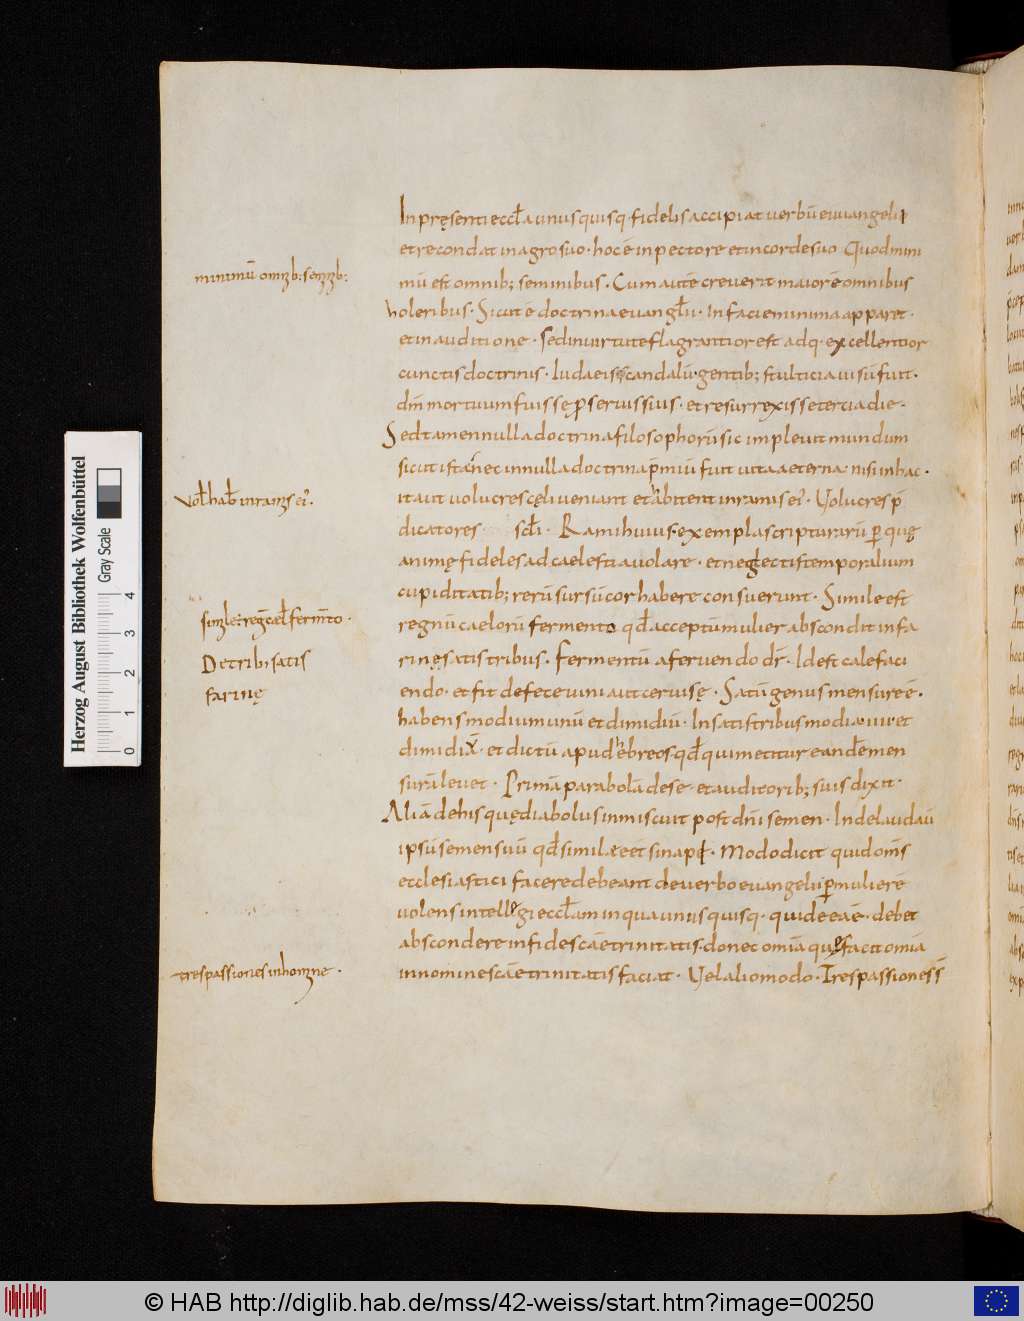 In pręsenti eccła unusquisq· fidelis accipiat uerbū euuangelii
et recondat in agro suo· hoc ē in pectore et in corde suo Quod mini
minimū omīb: semīb:
mū est omnib; seminibus· Cum autē creuerit maior ē omnibus
holeribus· Sicut ē doctrina euangłii· In facie minima apparet·
et in auditione· sed in uirtute flagrantior est adq· excellentior
cunctis doctrinis· Iudaeis scandalū· gentib; stulticia uisū fuit·
dn̄m mortuum fuisse p seruis suis· et resurrexisse tercia die·
Sed tamen nulla doctrina filosophorū sic impleuit mundum
sicut ista· nec in nulla doctrina p̄miū fuit uita aeterna· nisi in hac·
Vol hab in ramis ei'·
ita ut uolucres cęli ueniant et habitent in ramis ei'· Uolucres p̄
dicatores sc̄i· Rami huius· exempla scripturarū p quę
animę fideles ad caelestia uolare· et neglectis temporalium
cupiditatib; rerū sursū cor habere consuerunt· Simile est
simle: regcel ferm̄to·
regnū caelorū fermento qđ acceptū mulier abscondit in fa
De tribi satis
rinę satis tribus· Fermentū a feruendo dr̄· Id est calefaci
farinę
endo· et fit de fece uini aut ceruisę· Satū genus mensurę ē·
habens modium unū et dimidiū· In satis tribus modia· iiii· et
dimidiā· et dictū apud hebreos· qđ qui metitur eandē men
surā leuet· Primā parabolā de se· et auditorib; suis dixit·
Aliā de his quę diabolus inmiscuit post dn̄i semen· Inde laudauit
ipsū semen suū qđ simila ē et sinapi· Modo dicit quid om̄s
ecclesiastici facere debeant de uerbo euangelii· p mulierē
uolens intellegi ecclam in qua unusquisq· qui de ea ē· debet
abscondere in fide scāe trinitatis· donec omia que facit omia
tres passiones in homīne·
in nomine scāe trinitatis faciat· Uel alio modo· Tres passiones s̄
Herzog August Bibliothek Wolfenbüttel
Gray Scale
0 1 2 3 4
© HAB http://diglib.hab.de/mss/42-weiss/start.htm?image=00250